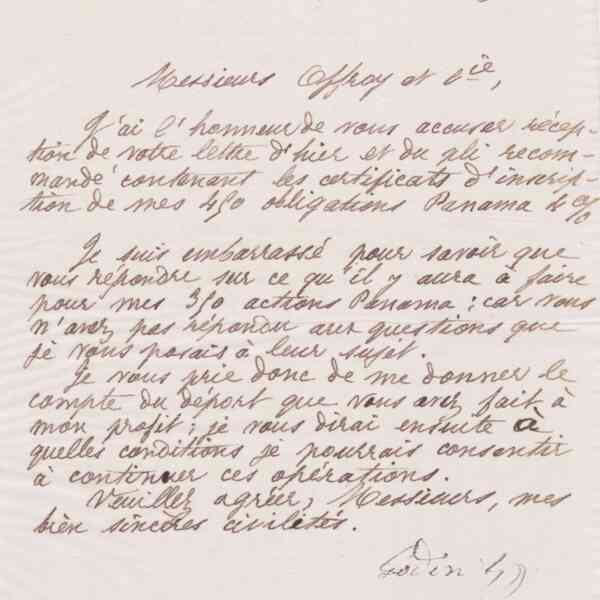 Messieurs Offroy et Cie,
J'ai l'honneur de vous accuser récep-
tion de votre lettre d'hier et du pli recom-
mandé contenant les certificats d'inscrip-
tion de mes 450 obligations Panama 4 %
Je suis embarrassé pour savoir que
vous répondre sur ce qu'il y aura à faire
pour mes 350 actions Panama : car vous
n'avez pas répondu aux questions que
je vous posais à leur sujet.
Je vous prie donc de me donner le
compte du déport que vous avez fait à
mon profit ; je vous dirai ensuite à
quelles conditions je pourrais consentir
à continuer ces opérations.
Veuillez agréer, Messieurs, mes
bien sincères civilités.
Godin